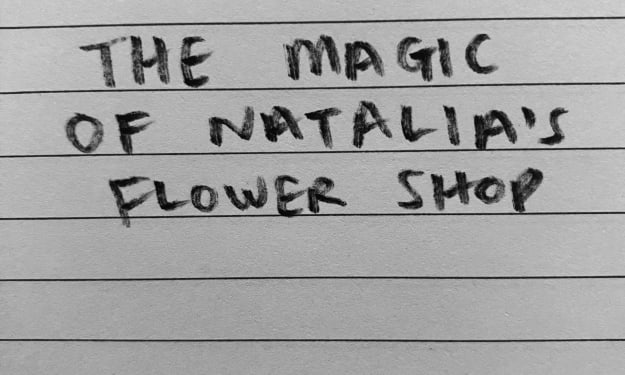 THE MAGIC
OF NATALIA'S
FLOWER SHOP